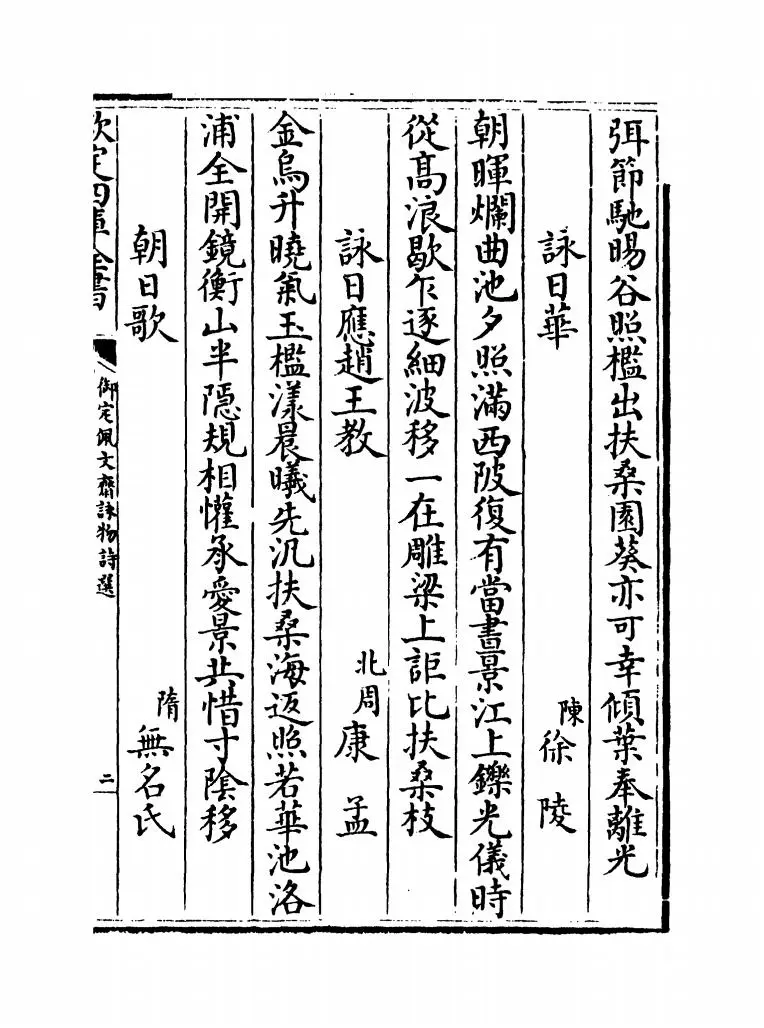 弭節馳暘谷照檻出扶桑園葵亦可幸傾葉奉離光
詠日華
陳徐陵
朝暉爛曲池夕照滿西陂復有當晝景江上鑠光儀時
從高浪歇乍逐細波移一在雕梁上詎比扶桑枝
詠日應趙王教
北周康孟
金烏升曉氣玉檻漾晨曦先汎扶桑海返照若華池洛
浦全開鏡衡山半隠規相懽承愛景共惜寸陰移
朝日歌
隋無名氏
欽定四庫全書
御定佩文齋詠物詩選
二